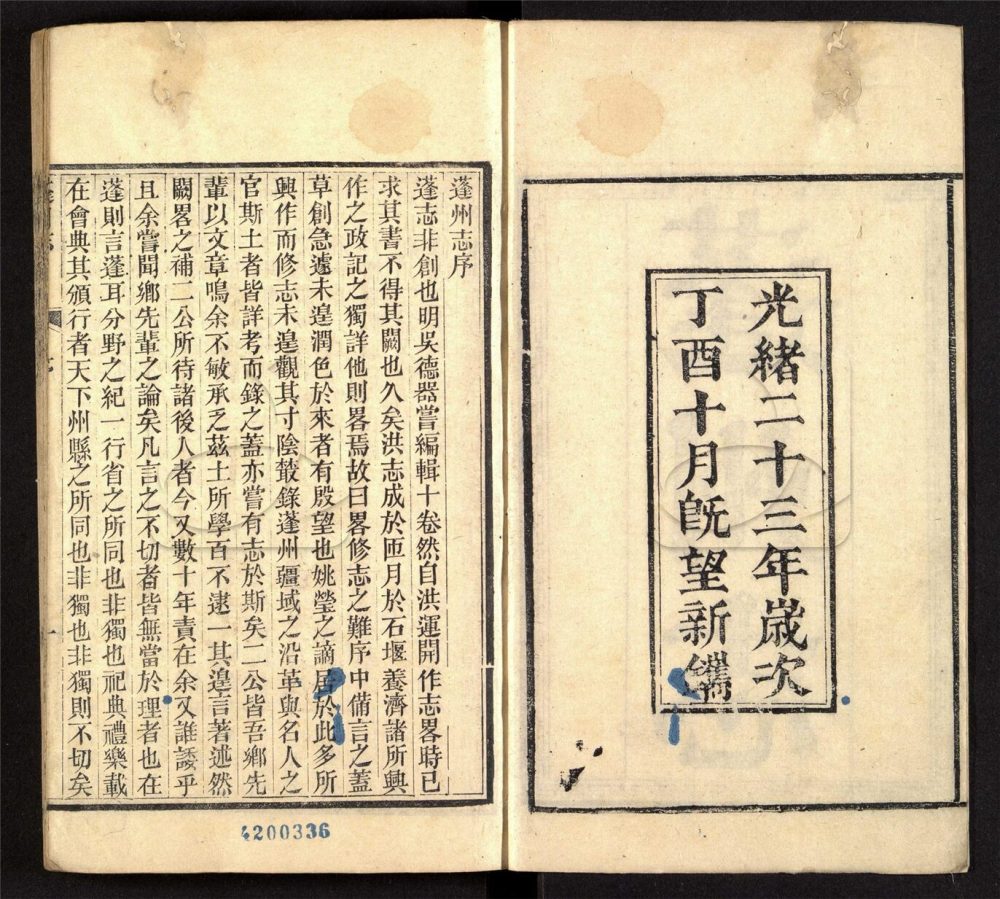 光緒二十三年歲次
丁酉十月旣望新鐫
蓬州志序
蓬志非創也明吳德器嘗編輯十卷然自洪運開作志畧時已
求其書不得其闕也久矣洪志成於匝月於石堰養濟諸所興
作之政記之獨詳他則畧焉故曰畧修志之難序中備言之蓋
草創急遽未遑潤色於來者有殷望也姚瑩之謫居於此多所
興作而修志未遑觀其寸陰叢錄蓬州疆域之沿革與名人之
官斯土者皆詳考而錄之蓋亦嘗有志於斯矣二公皆吾鄉先
輩以文章鳴余不敏承乏茲土所學百不逮一其遑言著述然
闕畧之補二公所待諸後人者今又數十年責在余又誰諉乎
且余嘗聞鄉先輩之論矣凡言之不切者皆無當於理者也在
蓬則言蓬耳分野之紀一行省之所同也非獨也祀典禮樂載
在會典其頒行者天下州縣之所同也非獨也非獨則不切矣
一
4200336